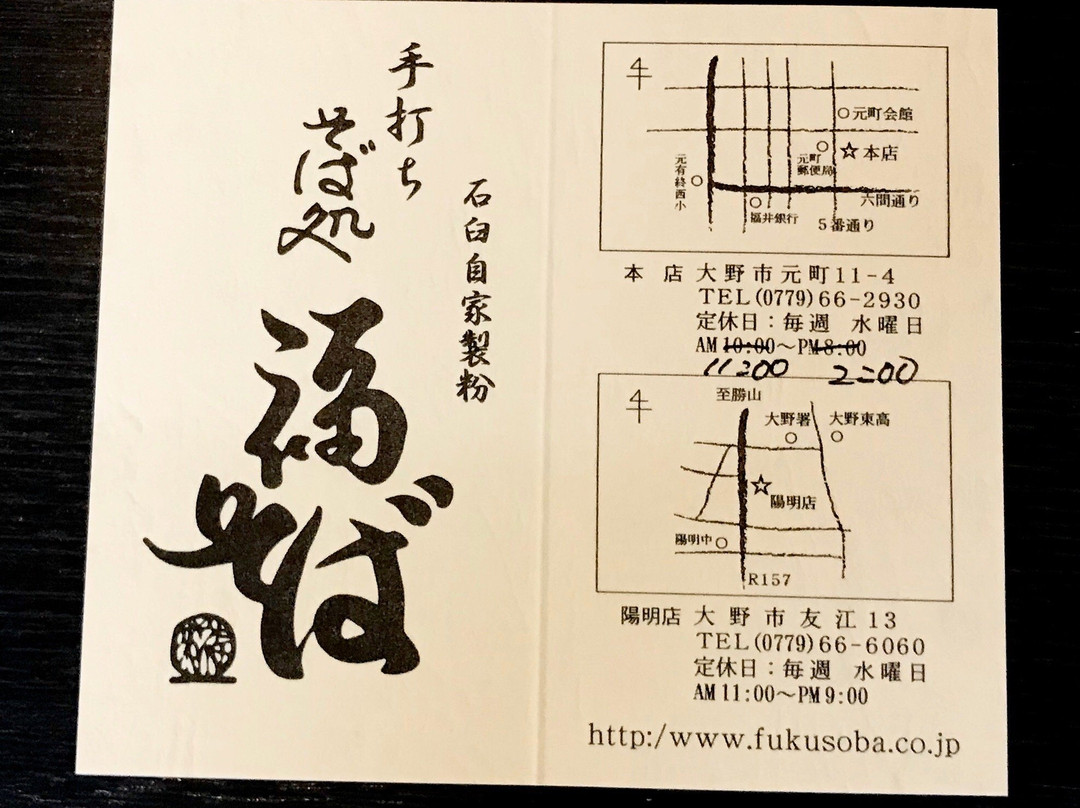 手打ち
そば処
福そば
石臼自家製粉
元町会館
元町
郵便局
☆本店
元有終西小
六間通り
福井銀行
5番通り
本店 大野市元町11-4
TEL(0779)66-2930
定休日:毎週 水曜日
AM10:00〜PM8:00
11:00 2:00
至勝山
大野署
大野東高
☆
陽明店
陽明中
R157
陽明店 大野市友江13
TEL(0779)66-6060
定休日:毎週 水曜日
AM11:00〜PM9:00
http:/www.fukusoba.co.jp